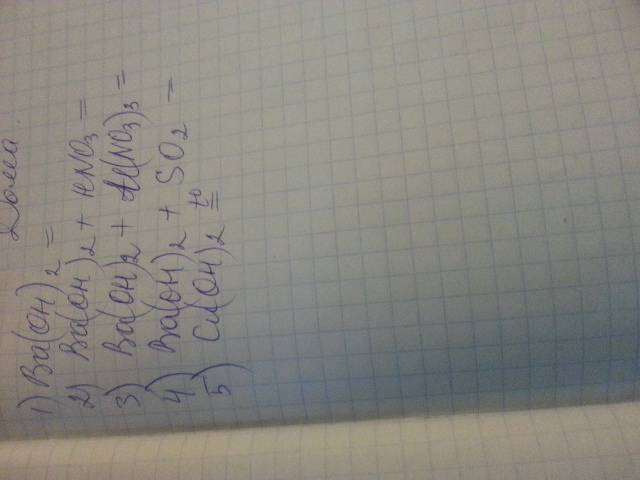 Дома.
1) Ba(OH)₂ =
2) Ba(OH)₂ + HNO₃ =
3) Ba(OH)₂ + Al(NO₃)₃ =
4) Ba(OH)₂ + SO₂ =
5) Cu(OH)₂ t° =